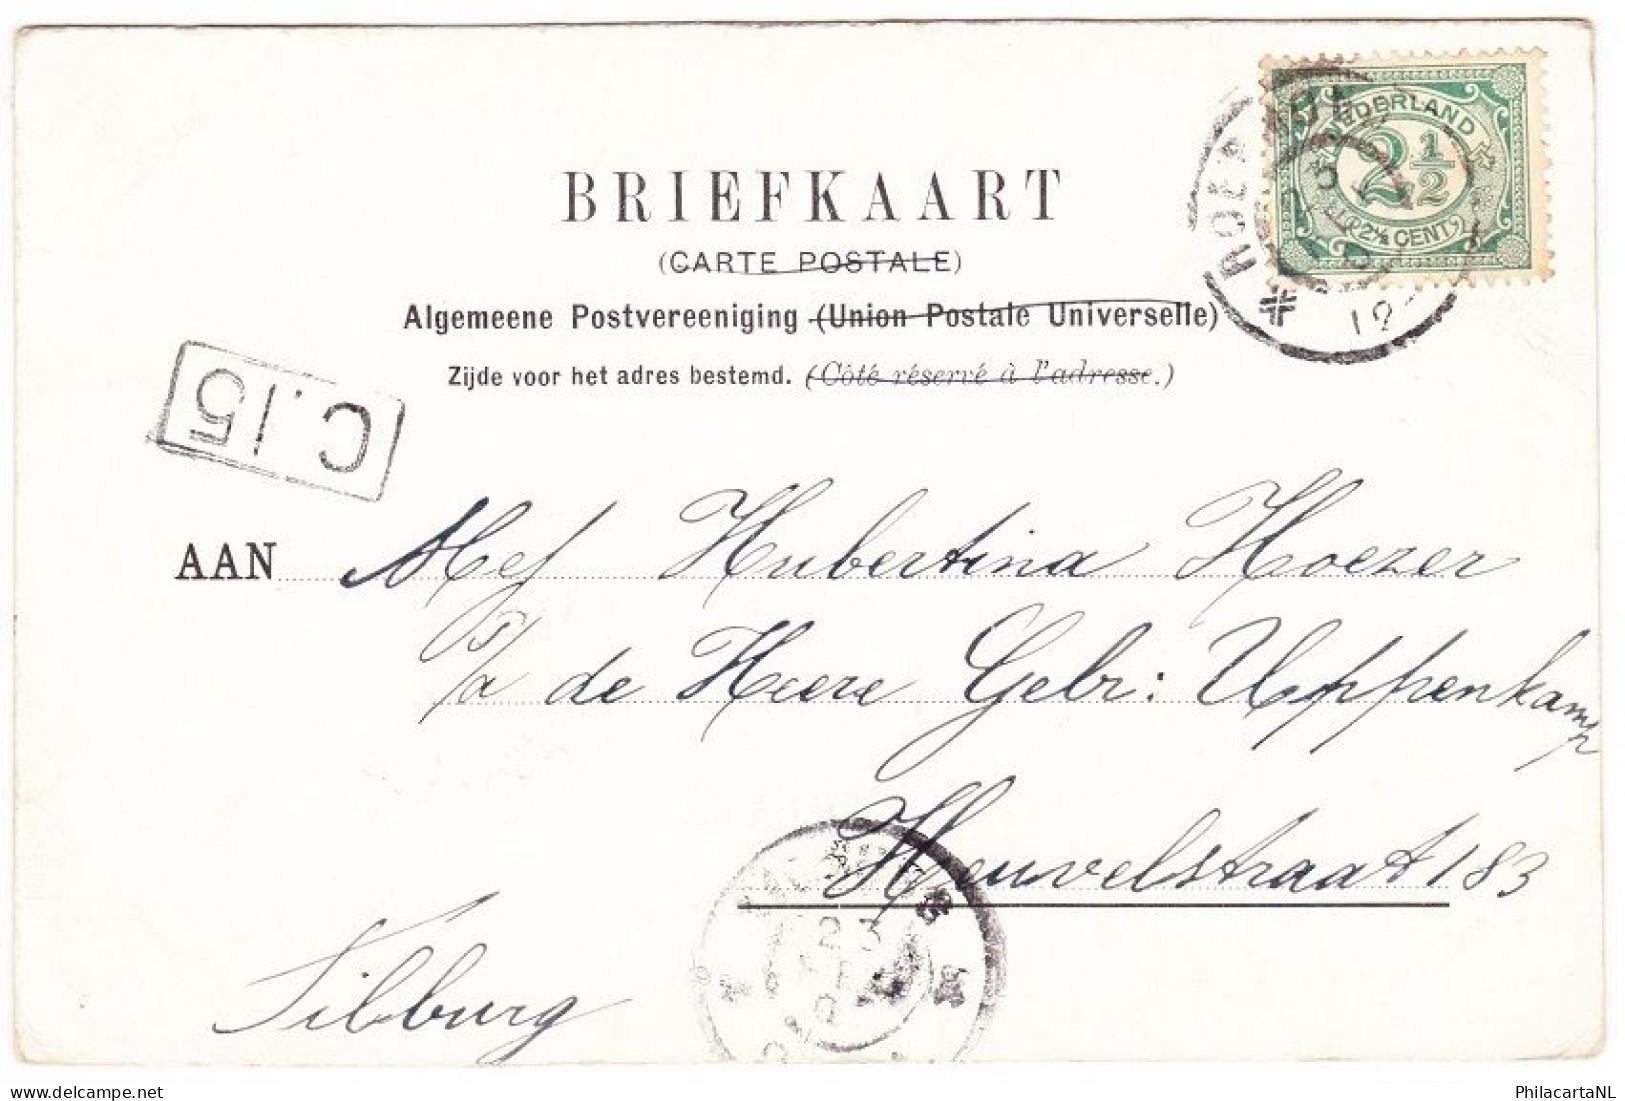 BRIEFKAART
(CARTE POSTALE)
Algemeene Postvereeniging (Union Postale Universelle)
Zijde voor het adres bestemd. (Côté réservé à l'adresse.)
NEDERLAND
2 1/2
2½ CENT
C.15
AAN Mej Hubertina Hoezer
p/a de Heere Gebr: Uppenkamp
Heuvelstraat 183
Tilburg
23
delcampe.net
PhilacartaNL